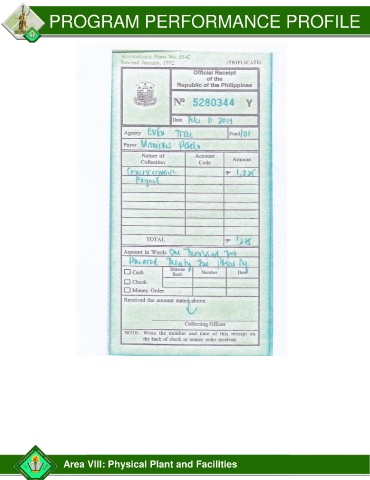 PROGRAM PERFORMANCE PROFILE
Accountable Form No. 51-C
Revised January, 1992
(TRIPLICATE)
Official Receipt
of the
Republic of the Philippines
Nº 5280344 Y
Date Feb 11 2014
Agency
Fund 101
Payor
Nature of
Collection
Account
Code
Amount
₱ 1,225
TOTAL ₱ 1225
Amount in Words One Thousand Two
Hundred Twenty Five Pesos
Cash
Check
Money Order
Drawee
Bank
Number
Date
Received the amount stated above.
Collecting Officer
NOTE: Write the number and date of this receipt on
the back of check or money order received.
Area VIII: Physical Plant and Facilities